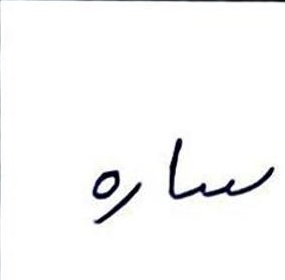 ساره